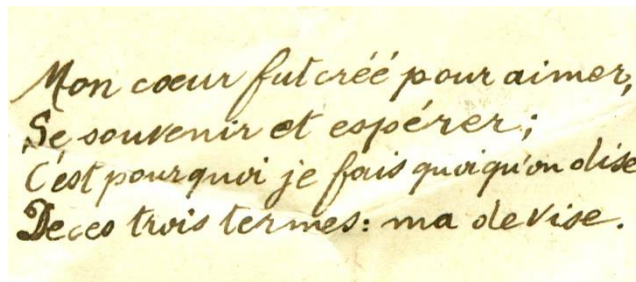 Mon cœur fut créé pour aimer,
Se souvenir et espérer;
C'est pourquoi je fais quoiqu'on dise
De ces trois termes: ma devise.